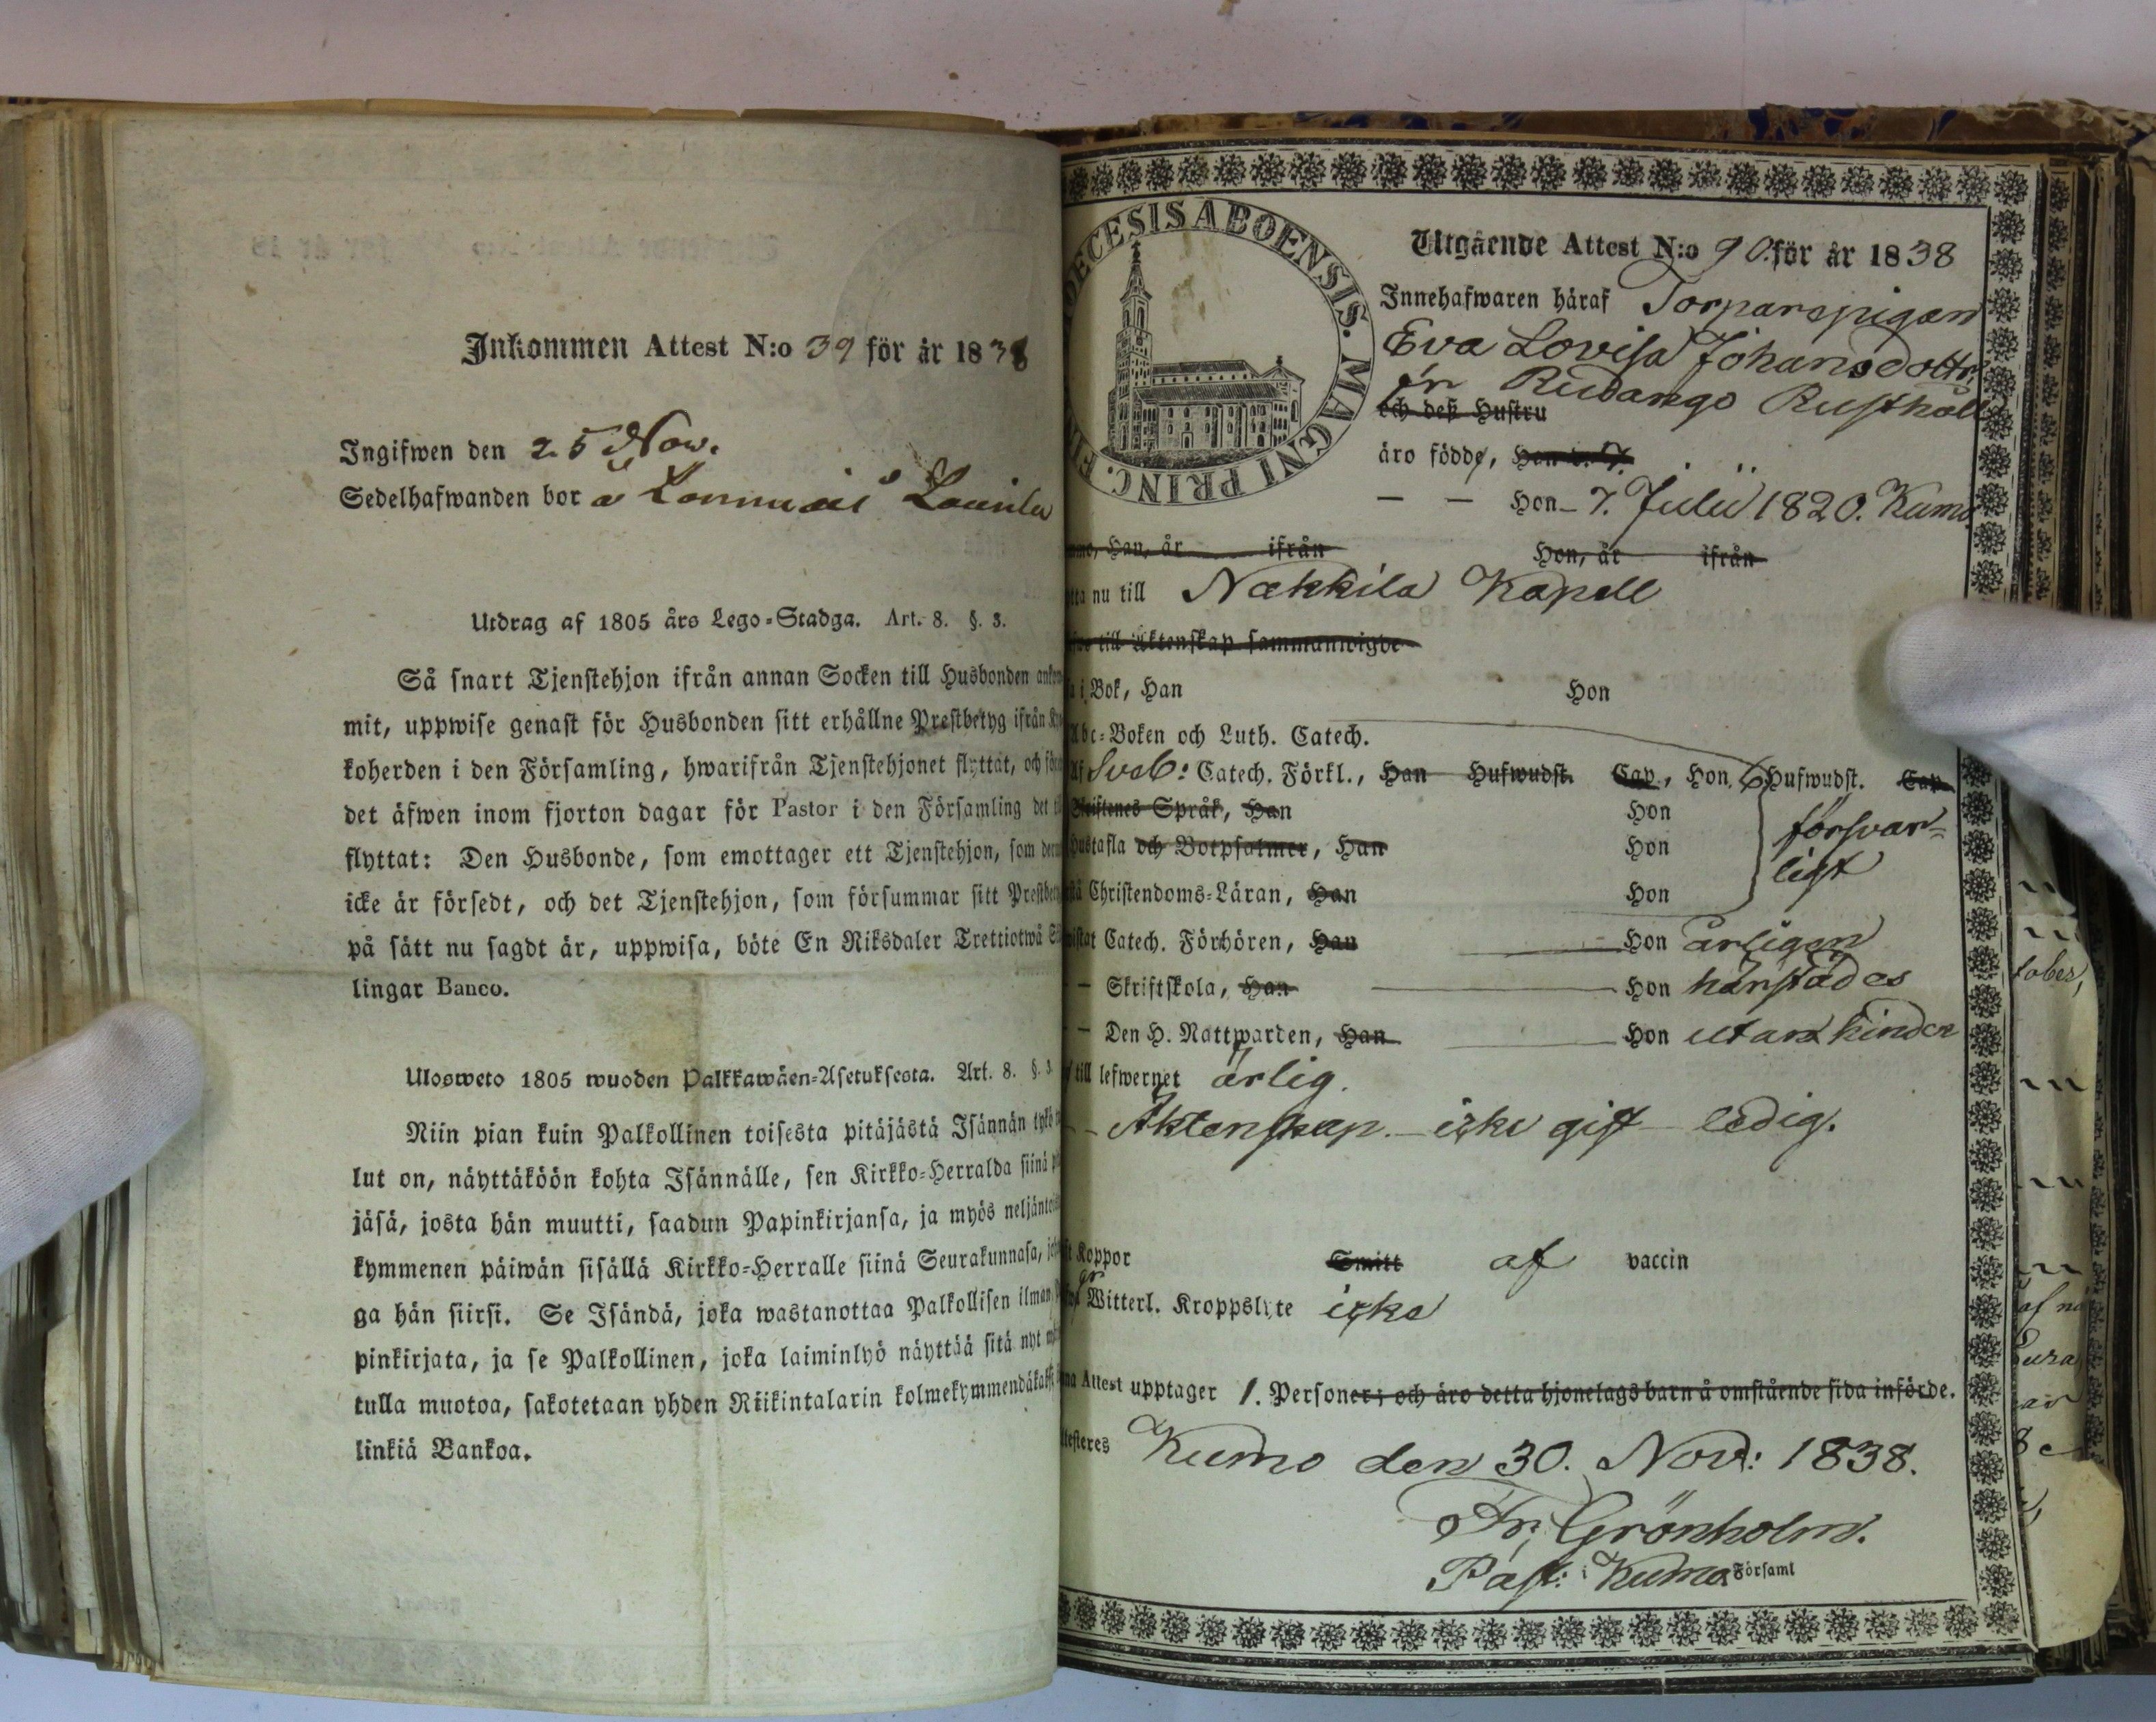 Inkommen Attest N:o 39 för år 1838
Ingifwen den 25 Nov.
Sedelhafwanden bor å
Utdrag af 1805 års Lego-Stadga. Art. 8. §. 3.
Så snart Tjenstehjon ifrån annan Socken till Husbonden
mit, uppwise genast för Husbonden sitt erhållne Prestbetyg ifrån
koherden i den Församling, hwarifrån Tjenstehjonet flyttat, och
det äfwen inom fjorton dagar för Pastor i den Församling det
flyttat: Den Husbonde, som emottager ett Tjenstehjon, som
icke är försedt, och det Tjenstehjon, som försummar sitt
på sätt nu sagdt är, uppwisa, böte En Riksdaler Trettiotwå
lingar Banco.
Ulosweto 1805 wuoden Palkkawäen-Asetuksesta. Art. 8. §. 3
Niin pian kuin Palkollinen toisesta pitäjästä Isännän tykö
lut on, näyttäköön kohta Isännälle, sen Kirkko-Herralda siinä
jäsä, josta hän muutti, saadun Papinkirjansa, ja myös
kymmenen päiwän sisällä Kirkko-Herralle siinä Seurakunnasa,
ga hän siirsi. Se Isändä, joka wastanottaa Palkollisen ilman
pinkirjata, ja se Palkollinen, joka laiminlyö näyttää sitä nyt
tulla muotoa, sakotetaan yhden Riikintalarin
linkiä Bankoa.
DIOECESIS ABOENSIS. MAGNI PRINC. FI
Utgående Attest N:o 90. för år 1838
Innehafwaren häraf Torparepigan
Eva Lovisa Johansdotter
ifr Rudanko Rusthåll
och deß Hustru
äro födde, Han d. 7.
— — Hon 7. Julii 1820. Kumo
Han, år ifrån Hon, år ifrån
nu till Nakkila Kapell
till Äktenskap sammanwigde
i Bok, Han Hon
Abc-Boken och Luth. Catech.
Sveb: Catech. Förkl., Han Hufwudst. Cap., Hon 6 Hufwudst. Cap.
Språk, Han Hon
Hustafla och Botpsalmer, Han Hon försvar-
Christendoms-Läran, Han Hon ligt
Catech. Förhören, Han Hon årligen
— Skriftskola, Han Hon härstädes
— Den H. Nattwarden, Han Hon utan hinder
till lefwernet ärlig.
— Äktenskap. — icke gift — ledig.
Koppor Smitt af vaccin
Witterl. Kroppslyte icke
Attest upptager 1. Personer; och äro detta hjonelags barn å omstående sida införde.
Kumo den 30. Nov: 1838.
Fr: Grönholm.
Past: i Kumo Församl